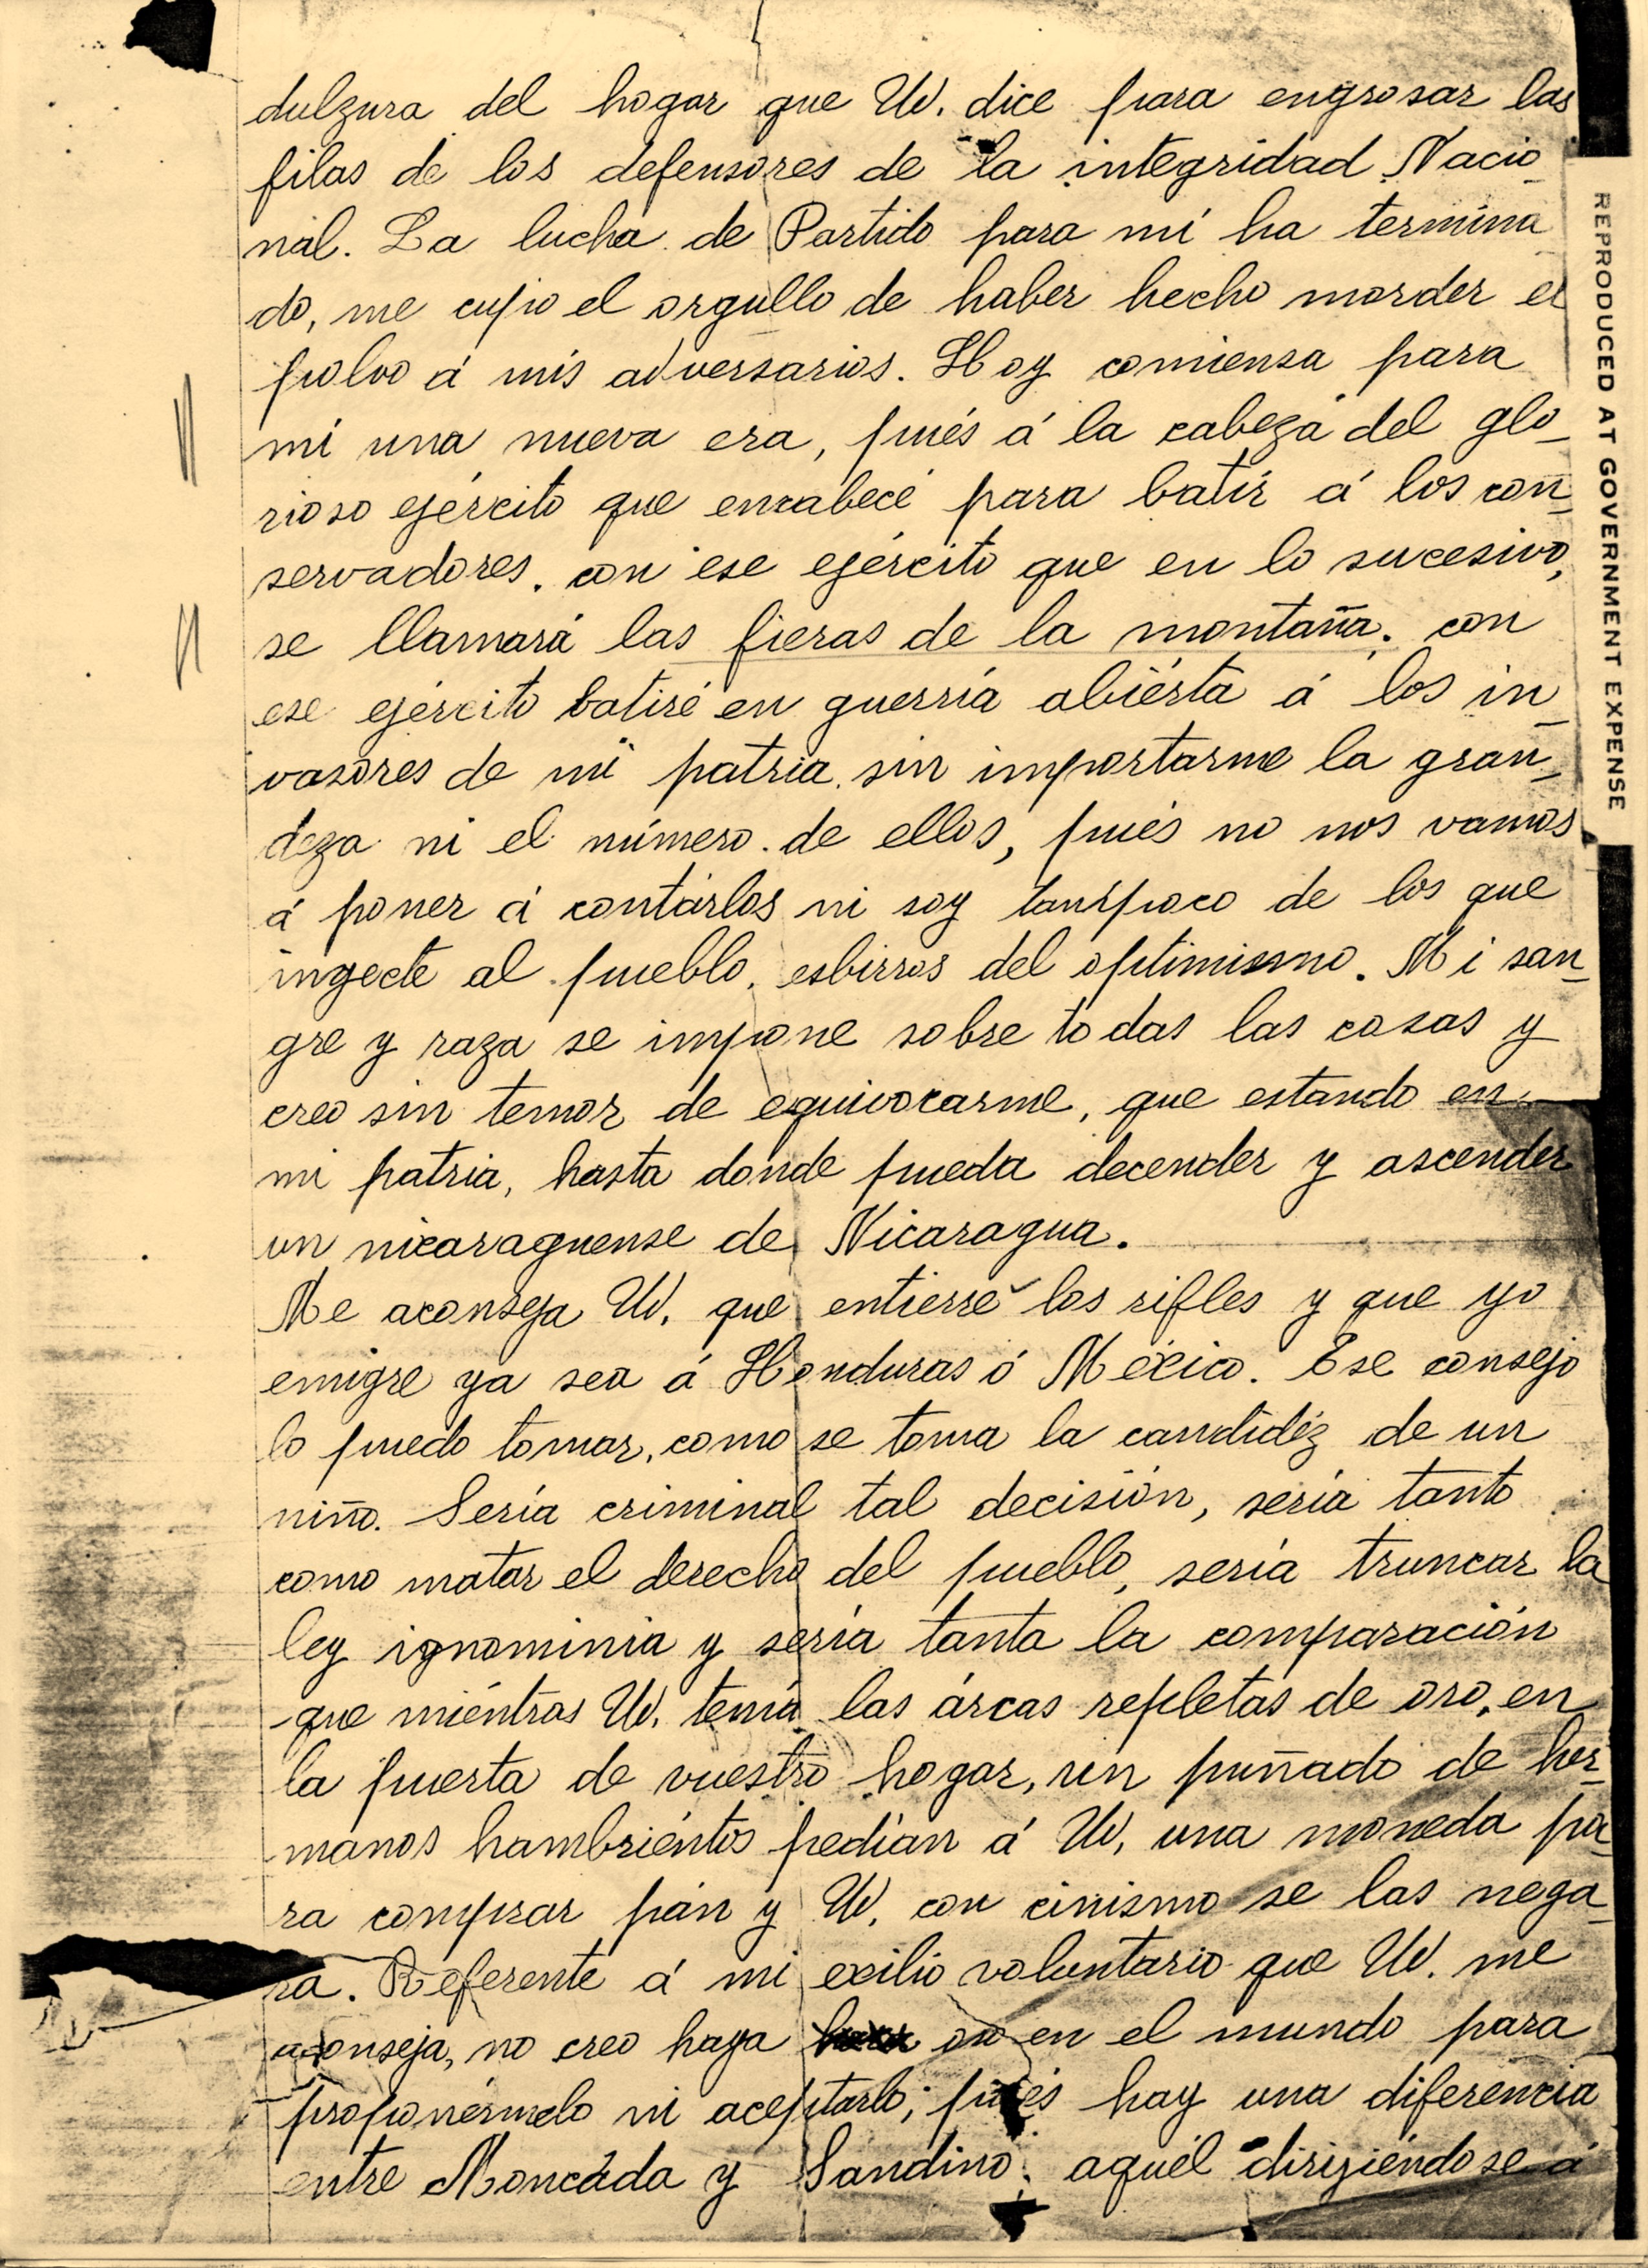 dulzura del hogar que Ud. dice para engrosar las
filas de los defensores de la integridad Nacio_
nal. La lucha de Partido para mí ha termina
do, me cupo el orgullo de haber hecho morder el
polvo á mis adversarios. Hoy comiensa para
mí una nueva era, pués á la cabeza del glo_
rioso ejército que encabecé para batir á los con_
servadores. con ese ejército que en lo sucesivo,
se llamará las fieras de la montaña. con
ese ejército batiré en guerría abiérta á los in_
vasores de mi patria. sin importarme la gran_
deza ni el número. de ellos, pués no nos vamos
á poner á contárlos ni soy tampoco de los que
ingecte al pueblo, esbirros del optimismo. Mi san_
gre y raza se impone sobre todas las cosas y
creo sin temor de equivocarme, que estando en
mi patria, hasta donde pueda decender y ascender
un nicaraguense de Nicaragua.
Me aconseja Ud. que entierre los rifles y que yo
emigre ya sea á Honduras ó México. Ese consejo
lo puedo tomar, como se toma la candidéz de un
niño. Sería criminal tal decisión, sería tanto
como matar el derecho del pueblo, sería truncar la
ley ignominia y sería tanta la comparación
que miéntras Ud. tenía las árcas repletas de oro, en
la puerta de vuestro hogar, un puñado de her_
manos hambriéntos pedían á Ud, una moneda pa_
ra comprar pán y Ud. con cinismo se las nega_
ra. Referente á mi exilio voluntario que Ud. me
aconseja, no creo haya oro en el mundo para
proponérmelo ni aceptarlo; pués hay una diferéncia
entre Moncáda y Sandino; aquél dirigiéndose á
REPRODUCED AT GOVERNMENT EXPENSE